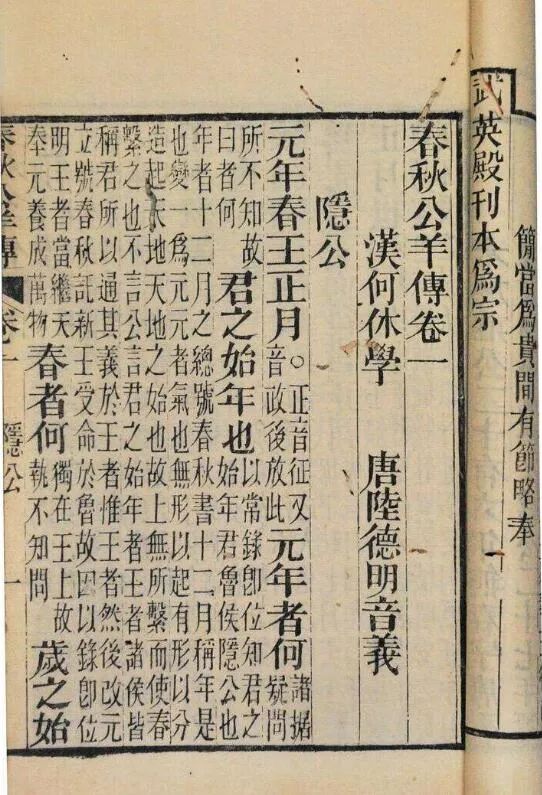 簡當爲貴間有節略奉
武英殿刊本爲宗
春秋公羊傳卷一
漢何休學 唐陸德明音義
隱公
元年春王正月。正音征又音政後放此元年者何諸据疑問
所不知故曰者何君之始年也以常錄卽位知君之始年君魯侯隱公也
年者十二月之總號春秋書十二月稱年是
也變一爲元元者氣也無形以起有形以分
造起天地天地之始也故上無所繫而使春
繫之也不言公言君之始年者王者諸侯皆
稱君所以通其義於王者惟王者然後改元
立號春秋託新王受命於魯故因以錄卽位
明王者當繼天奉元養成萬物春者何獨在王上故執不知問歲之始
春秋公羊傳 卷一 隱公 一